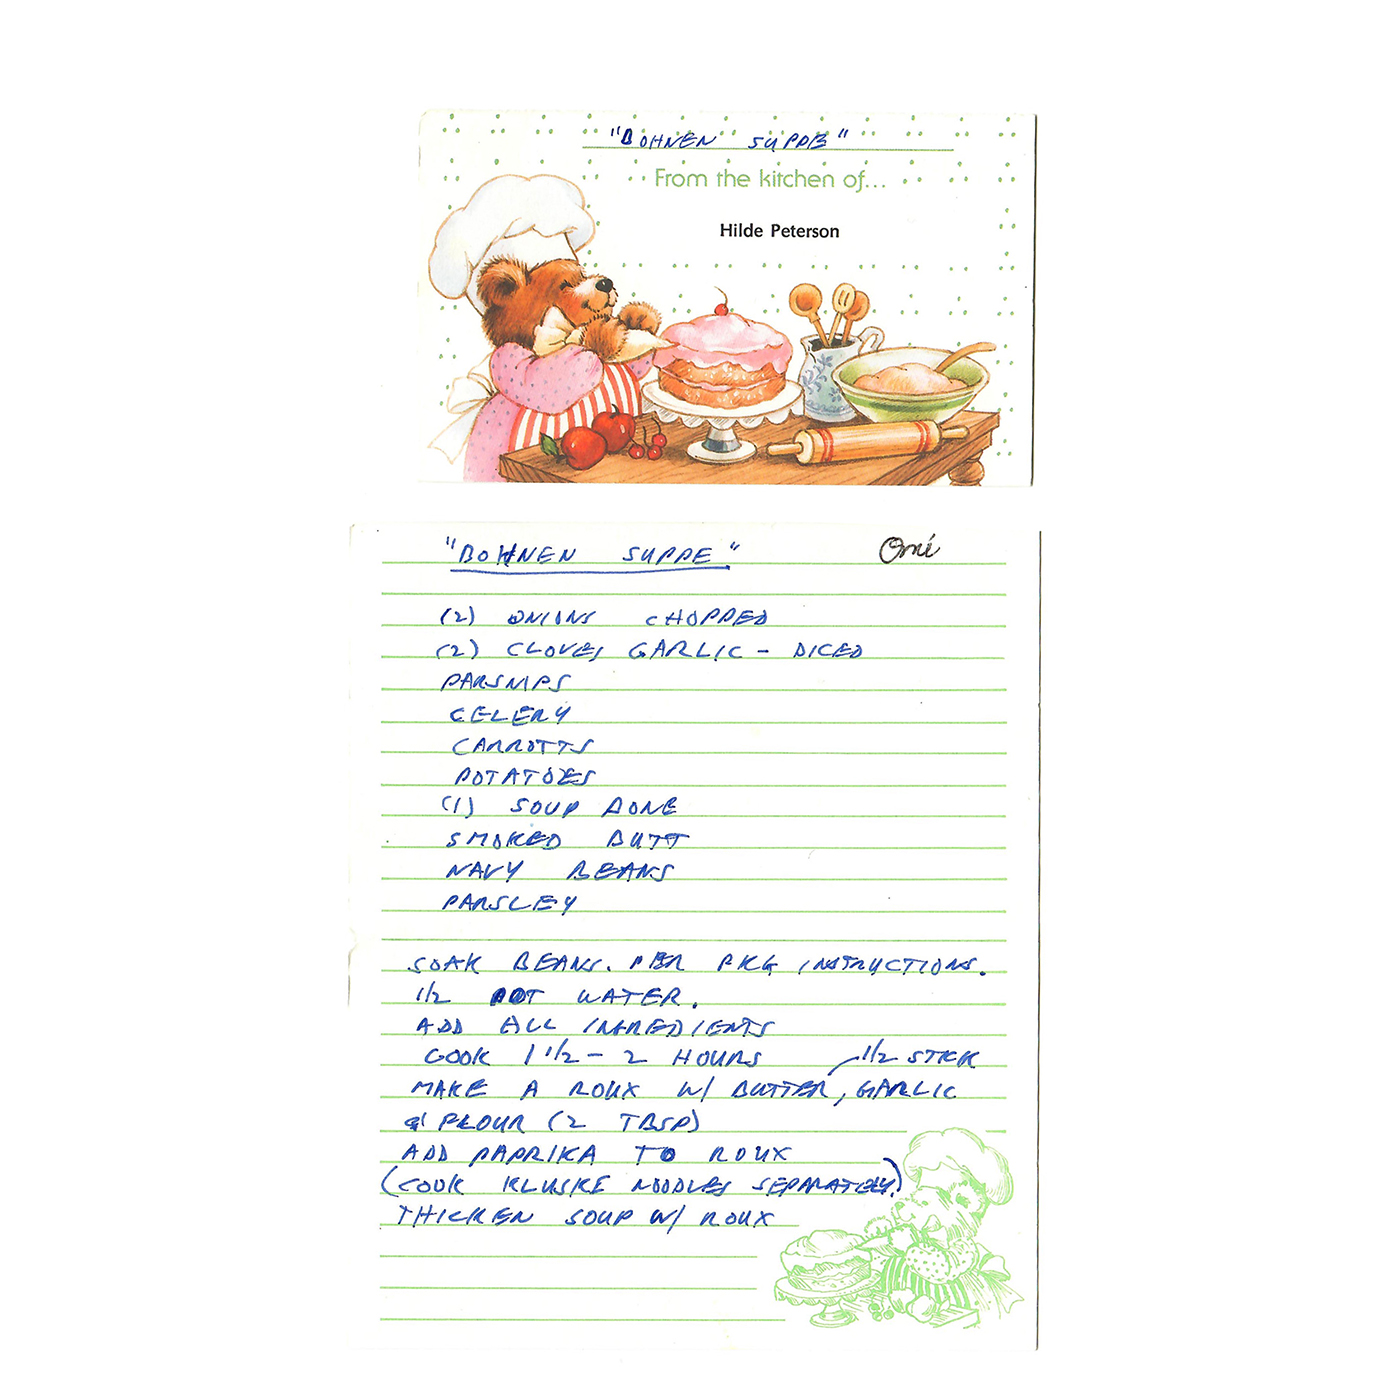 "BOHNEN SUPPE"
From the kitchen of...
Hilde Peterson
"BOHNEN SUPPE"
Omi
(2) ONIONS CHOPPED
(2) CLOVES GARLIC - DICED
PARSNIPS
CELERY
CARROTTS
POTATOES
(1) SOUP BONE
SMOKED BUTT
NAVY BEANS
PARSLEY
SOAK BEANS. PER PKG INSTRUCTIONS.
1/2 POT WATER.
ADD ALL INGREDIENTS
COOK 1 1/2 - 2 HOURS
1/2 STICK
MAKE A ROUX W/ BUTTER, GARLIC
& FLOUR (2 TBSP)
ADD PAPRIKA TO ROUX
(COOK KLUSKE NOODLES SEPARATELY.)
THICKEN SOUP W/ ROUX